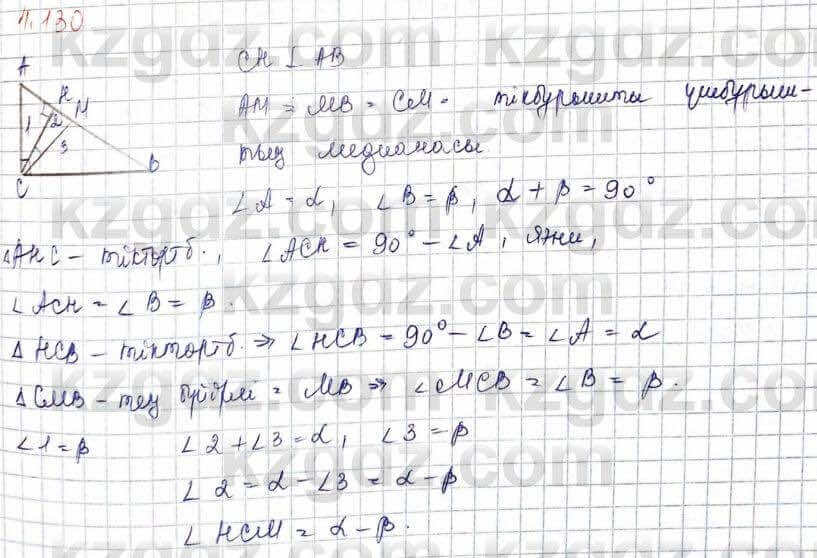 4.130
CH ⊥ AB
A
H
M
1
2
3
C
B
AM = MB = CM - тікбұрышты үшбұрыш-
тың медианасы
∠A = α, ∠B = β, α + β = 90°
△AHC - тіктөртб., ∠ACH = 90° - ∠A, яғни,
∠ACH = ∠B = β.
△HCB - тіктөртб. ⇒ ∠HCB = 90° - ∠B = ∠A = α
△CMB - тең бүйірлі = MB ⇒ ∠MCB = ∠B = β.
∠1 = β ∠2 + ∠3 = α, ∠3 = β
∠2 = α - ∠3 = α - β
∠HCM = α - β.
kzgdz.com